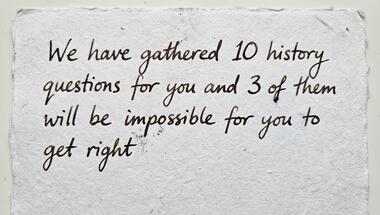 We have gathered 10 history
questions for you and 3 of them
will be impossible for you to
get right